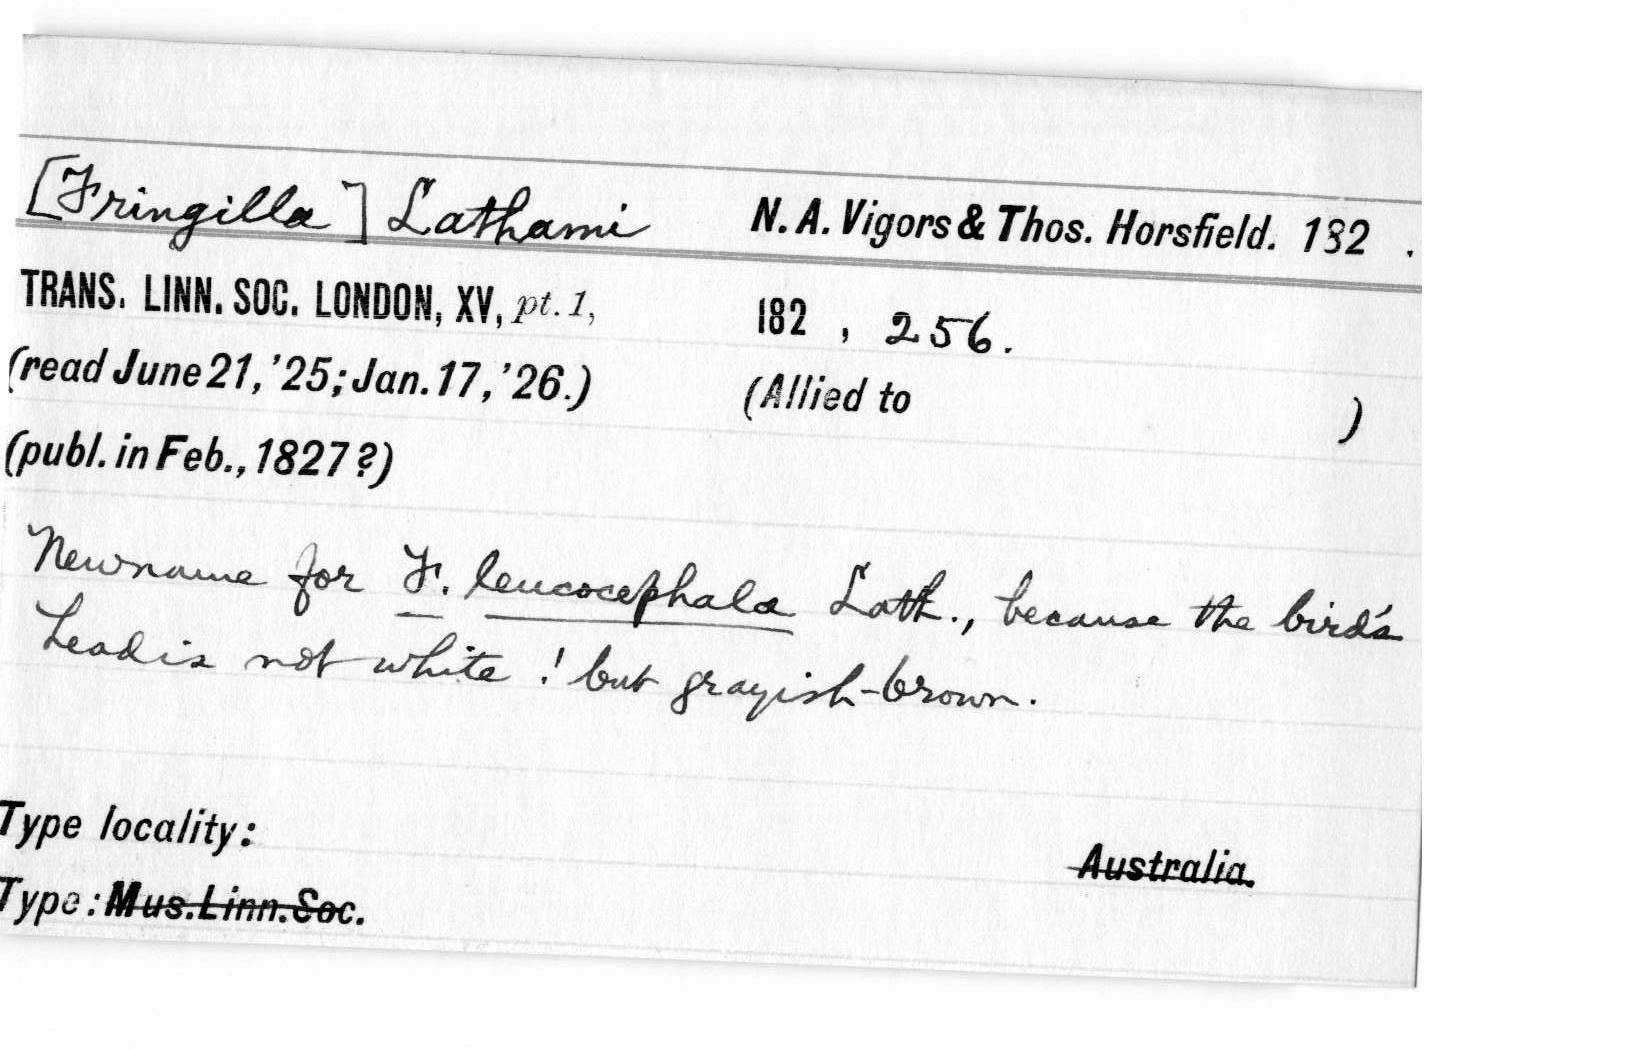 [Fringilla] Lathami N. A. Vigors & Thos. Horsfield. 182 .
TRANS. LINN. SOC. LONDON, XV, pt. 1, 182 , 256.
(read June 21, '25; Jan. 17, '26.) (Allied to )
(publ. in Feb., 1827 ?)
New name for F. leucocephala Lath., because the bird's
head is not white ! but grayish-brown.
Type locality: Australia.
Type: Mus. Linn. Soc.